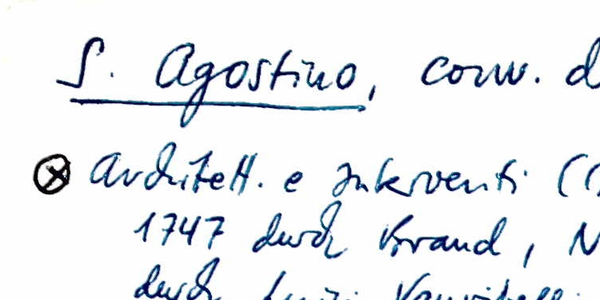 S. Agostino, conv. d
Architett. e Interventi (
1747 durch Brand, N
durch Luigi Vanvitelli